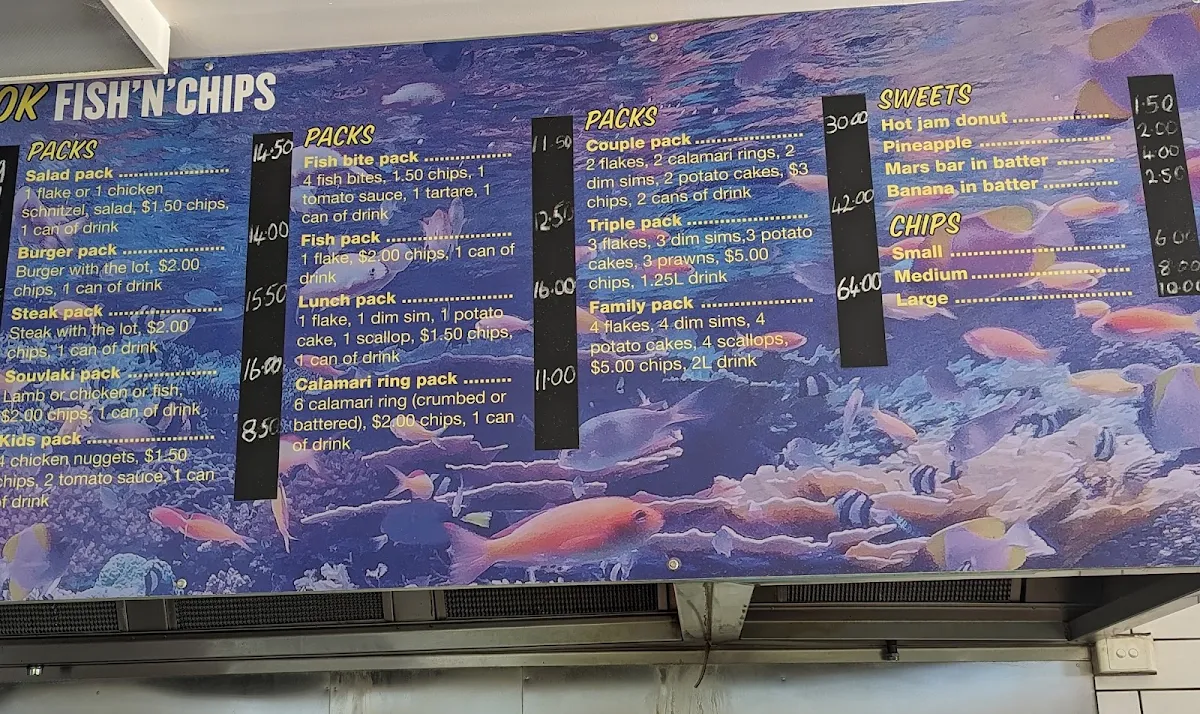 OK FISH'N'CHIPS
PACKS
Salad pack ........................ 14.50
1 flake or 1 chicken
schnitzel, salad, $1.50 chips,
1 can of drink
Burger pack ........................ 14.00
Burger with the lot, $2.00
chips, 1 can of drink
Steak pack ........................ 15.50
Steak with the lot, $2.00
chips, 1 can of drink
Souvlaki pack ........................ 16.00
Lamb or chicken or fish,
$2.00 chips, 1 can of drink
Kids pack ........................ 8.50
4 chicken nuggets, $1.50
chips, 2 tomato sauce, 1 can
of drink
PACKS
Fish bite pack ................ 11.50
4 fish bites, 1.50 chips, 1
tomato sauce, 1 tartare, 1
can of drink
Fish pack ........................ 12.50
1 flake, $2.00 chips, 1 can of
drink
Lunch pack ..................... 16.00
1 flake, 1 dim sim, 1 potato
cake, 1 scallop, $1.50 chips,
1 can of drink
Calamari ring pack ......... 11.00
6 calamari ring (crumbed or
battered), $2.00 chips, 1 can
of drink
PACKS
Couple pack ..................... 30.00
2 flakes, 2 calamari rings, 2
dim sims, 2 potato cakes, $3
chips, 2 cans of drink
Triple pack ........................ 42.00
3 flakes, 3 dim sims,3 potato
cakes, 3 prawns, $5.00
chips, 1.25L drink
Family pack ..................... 64.00
4 flakes, 4 dim sims, 4
potato cakes, 4 scallops,
$5.00 chips, 2L drink
SWEETS
Hot jam donut .................. 1.50
Pineapple ........................ 2.00
Mars bar in batter ............ 4.00
Banana in batter ............... 2.50
CHIPS
Small .............................. 6.00
Medium ........................... 8.00
Large .............................. 10.00